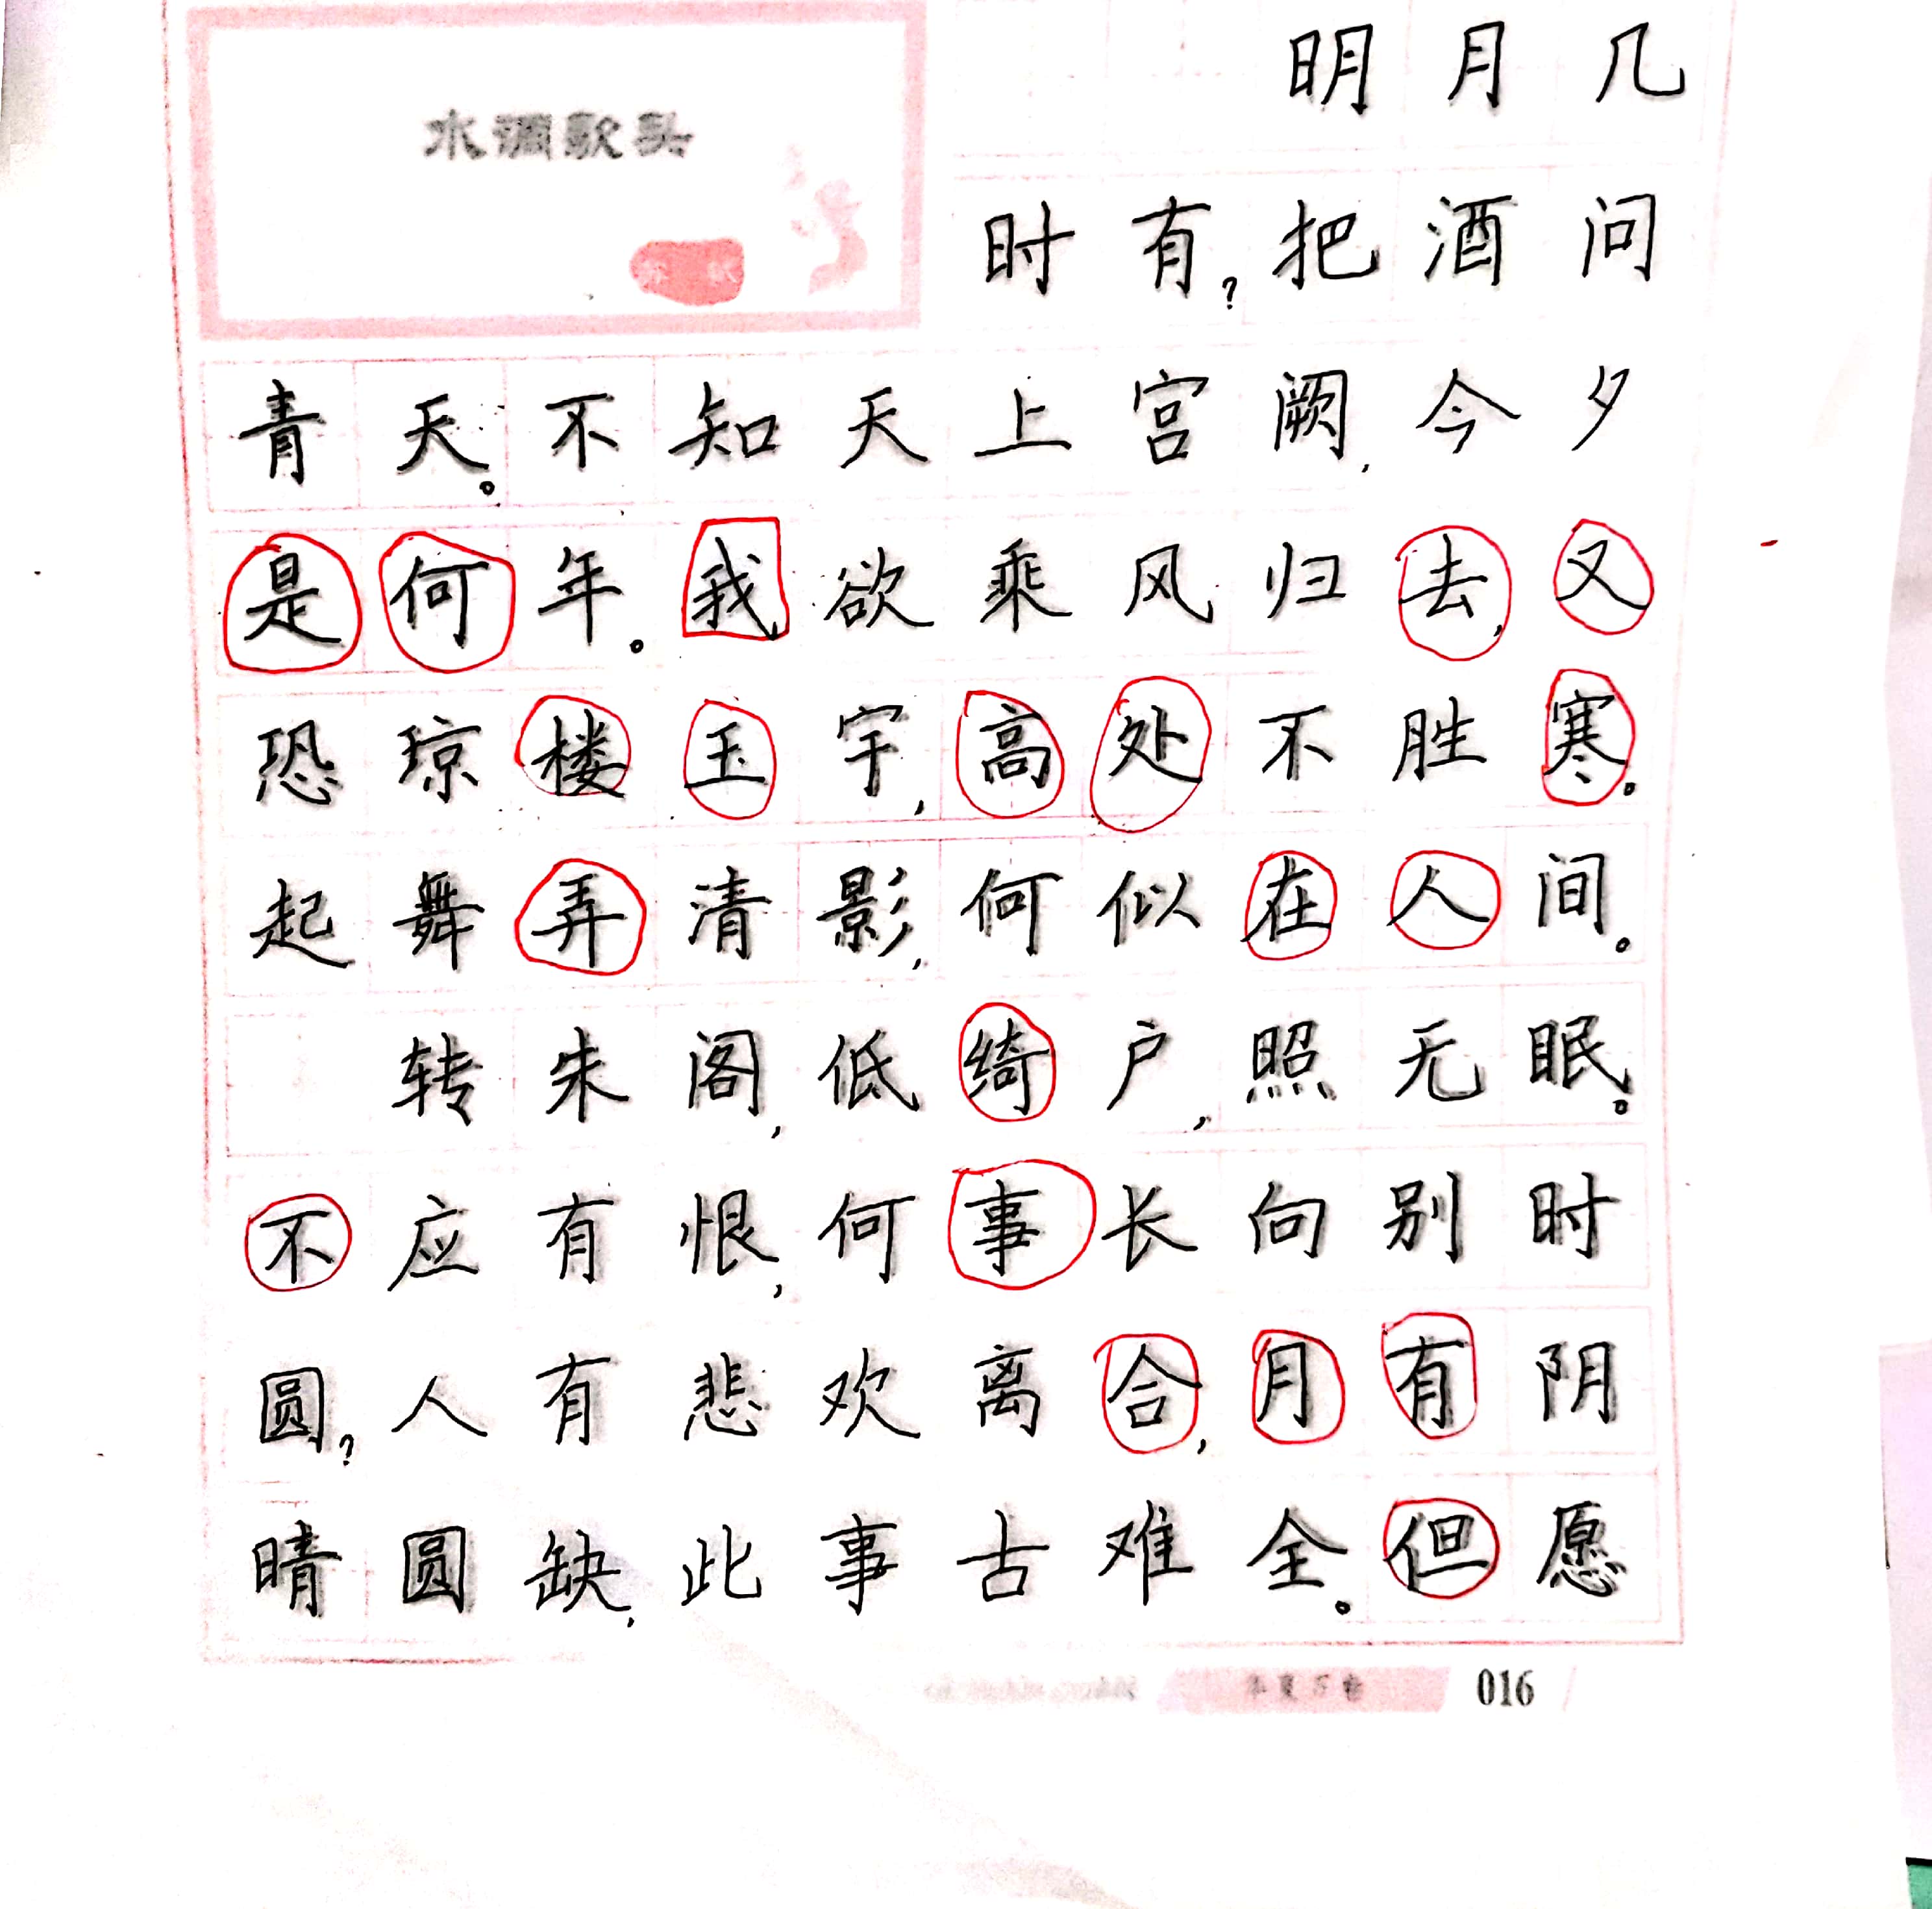 水调歌头
明月几
时有?把酒问
青天。不知天上宫阙,今夕
是何年。我欲乘风归去,又
恐琼楼玉宇,高处不胜寒。
起舞弄清影,何似在人间。
转朱阁,低绮户,照无眠。
不应有恨,何事长向别时
圆?人有悲欢离合,月有阴
晴圆缺,此事古难全。但愿
016